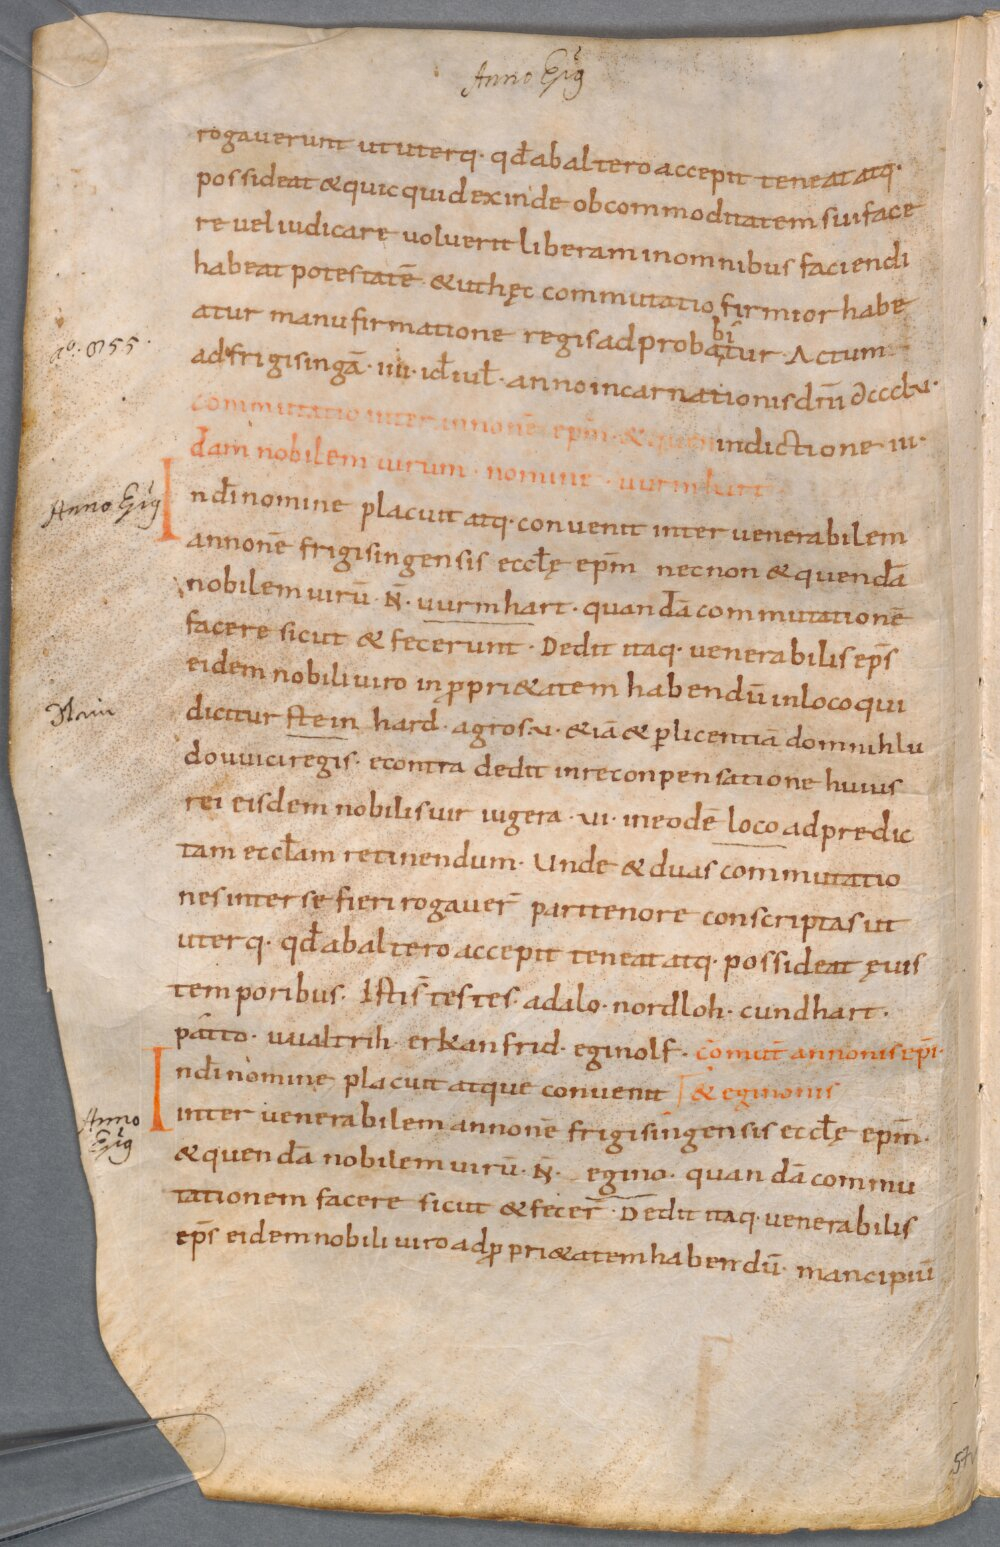 Anno Ep̄ꝰ
rogauerunt ut uterq· qđ ab altero accepit teneat atq·
possideat & quicquid exinde ob commoditatem sui face
re uel iudicare uoluerit liberam in omnibus faciendi
habeat potestatē· & ut hęc commutatio firmior habe
atur manu firmatione regis adprobabitur· Actum
aº. 855.
ad frigisingā· iiii· iđ iuł· anno incarnationis dn̄i dcccluͥ·
commutatio inter annonē ep̄m· & quen indictione iii·
dam nobilem uirum· nomine· uurmhart
Anno
In dī nomine placuit atq· conuenit inter uenerabilem
annonē frigisingensis eccłę ep̄m necnon & quendā
nobilem uirū· N̄· uurmhart· quandā commutationē
facere sicut & fecerunt· Dedit itaq· uenerabilis ep̄s
eidem nobili uiro in ꝓpri&atem habendū in loco qui
Stain
dicitur stein hard· agros·u· &iā & ꝑ licentiā domni hlu
douuici regis· econtra dedit in reconpensatione huius
rei eisdem nobilis uir iugera·ui· in eodē loco ad predic
tam eccłam retinendum· Unde & duas commutatio
nes inter se fieri rogauer̄ pari tenore conscriptas ut
uterq· qđ ab altero accepit teneat atq· possideat ęuis
temporibus· Isti s̄ testes· adalo· nordloh· cundhart·
patto· uualtrih· erkanfrid· eginolf· cōmut annonis ep̄i·
In dī nomine placuit atque conuenit & eginonis
Anno
inter uenerabilem annonē frigisingensis eccłę ep̄m·
& quendā nobilem uirū· N̄· egino· quandā commu
tationem facere sicut & fecer̄· Dedit itaq· uenerabilis
ep̄s eidem nobili uiro ad ꝓpri&atem habendū· mancipiū
57